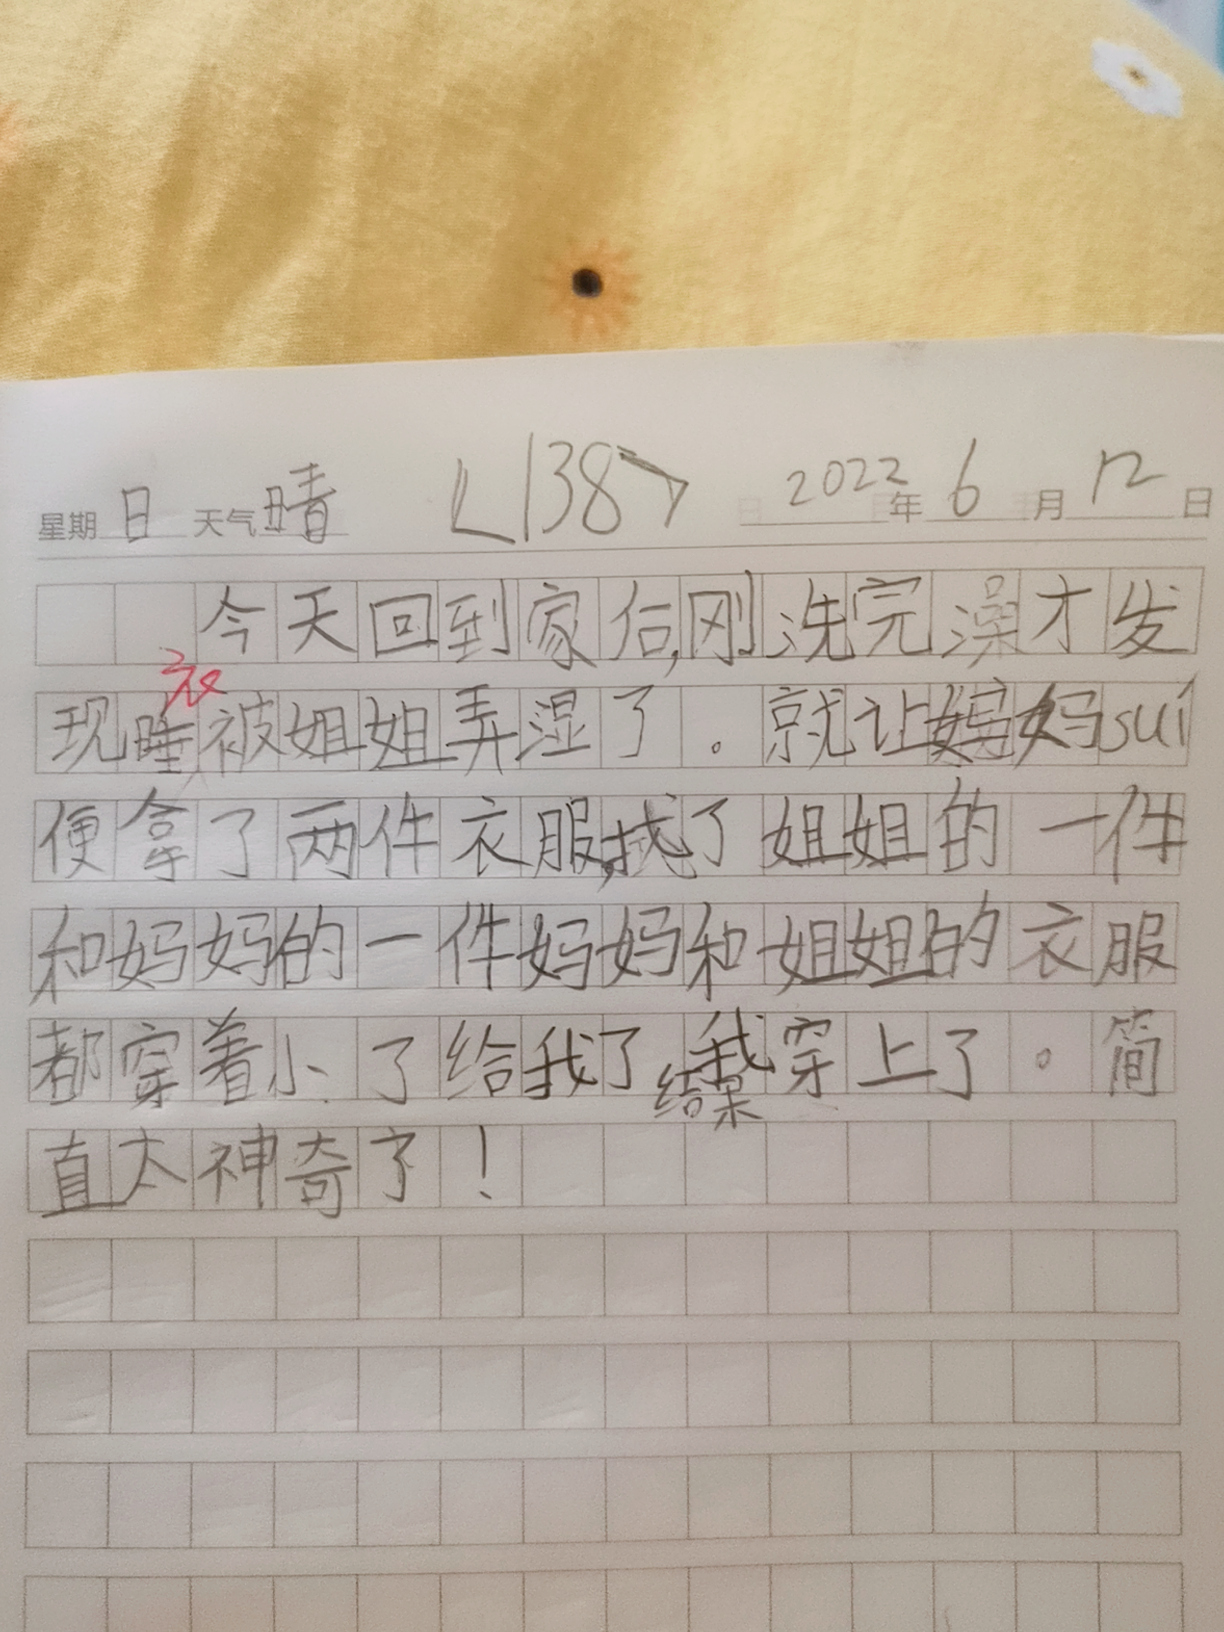 星期日 天气晴 <138> 2022年6月12日
今天回到家后,刚洗完澡才发
现睡衣被姐姐弄湿了。就让妈妈sui
便拿了两件衣服,找了姐姐的一件
和妈妈的一件妈妈和姐姐的衣服
都穿着小了给我了,结果我穿上了。简
直太神奇了!